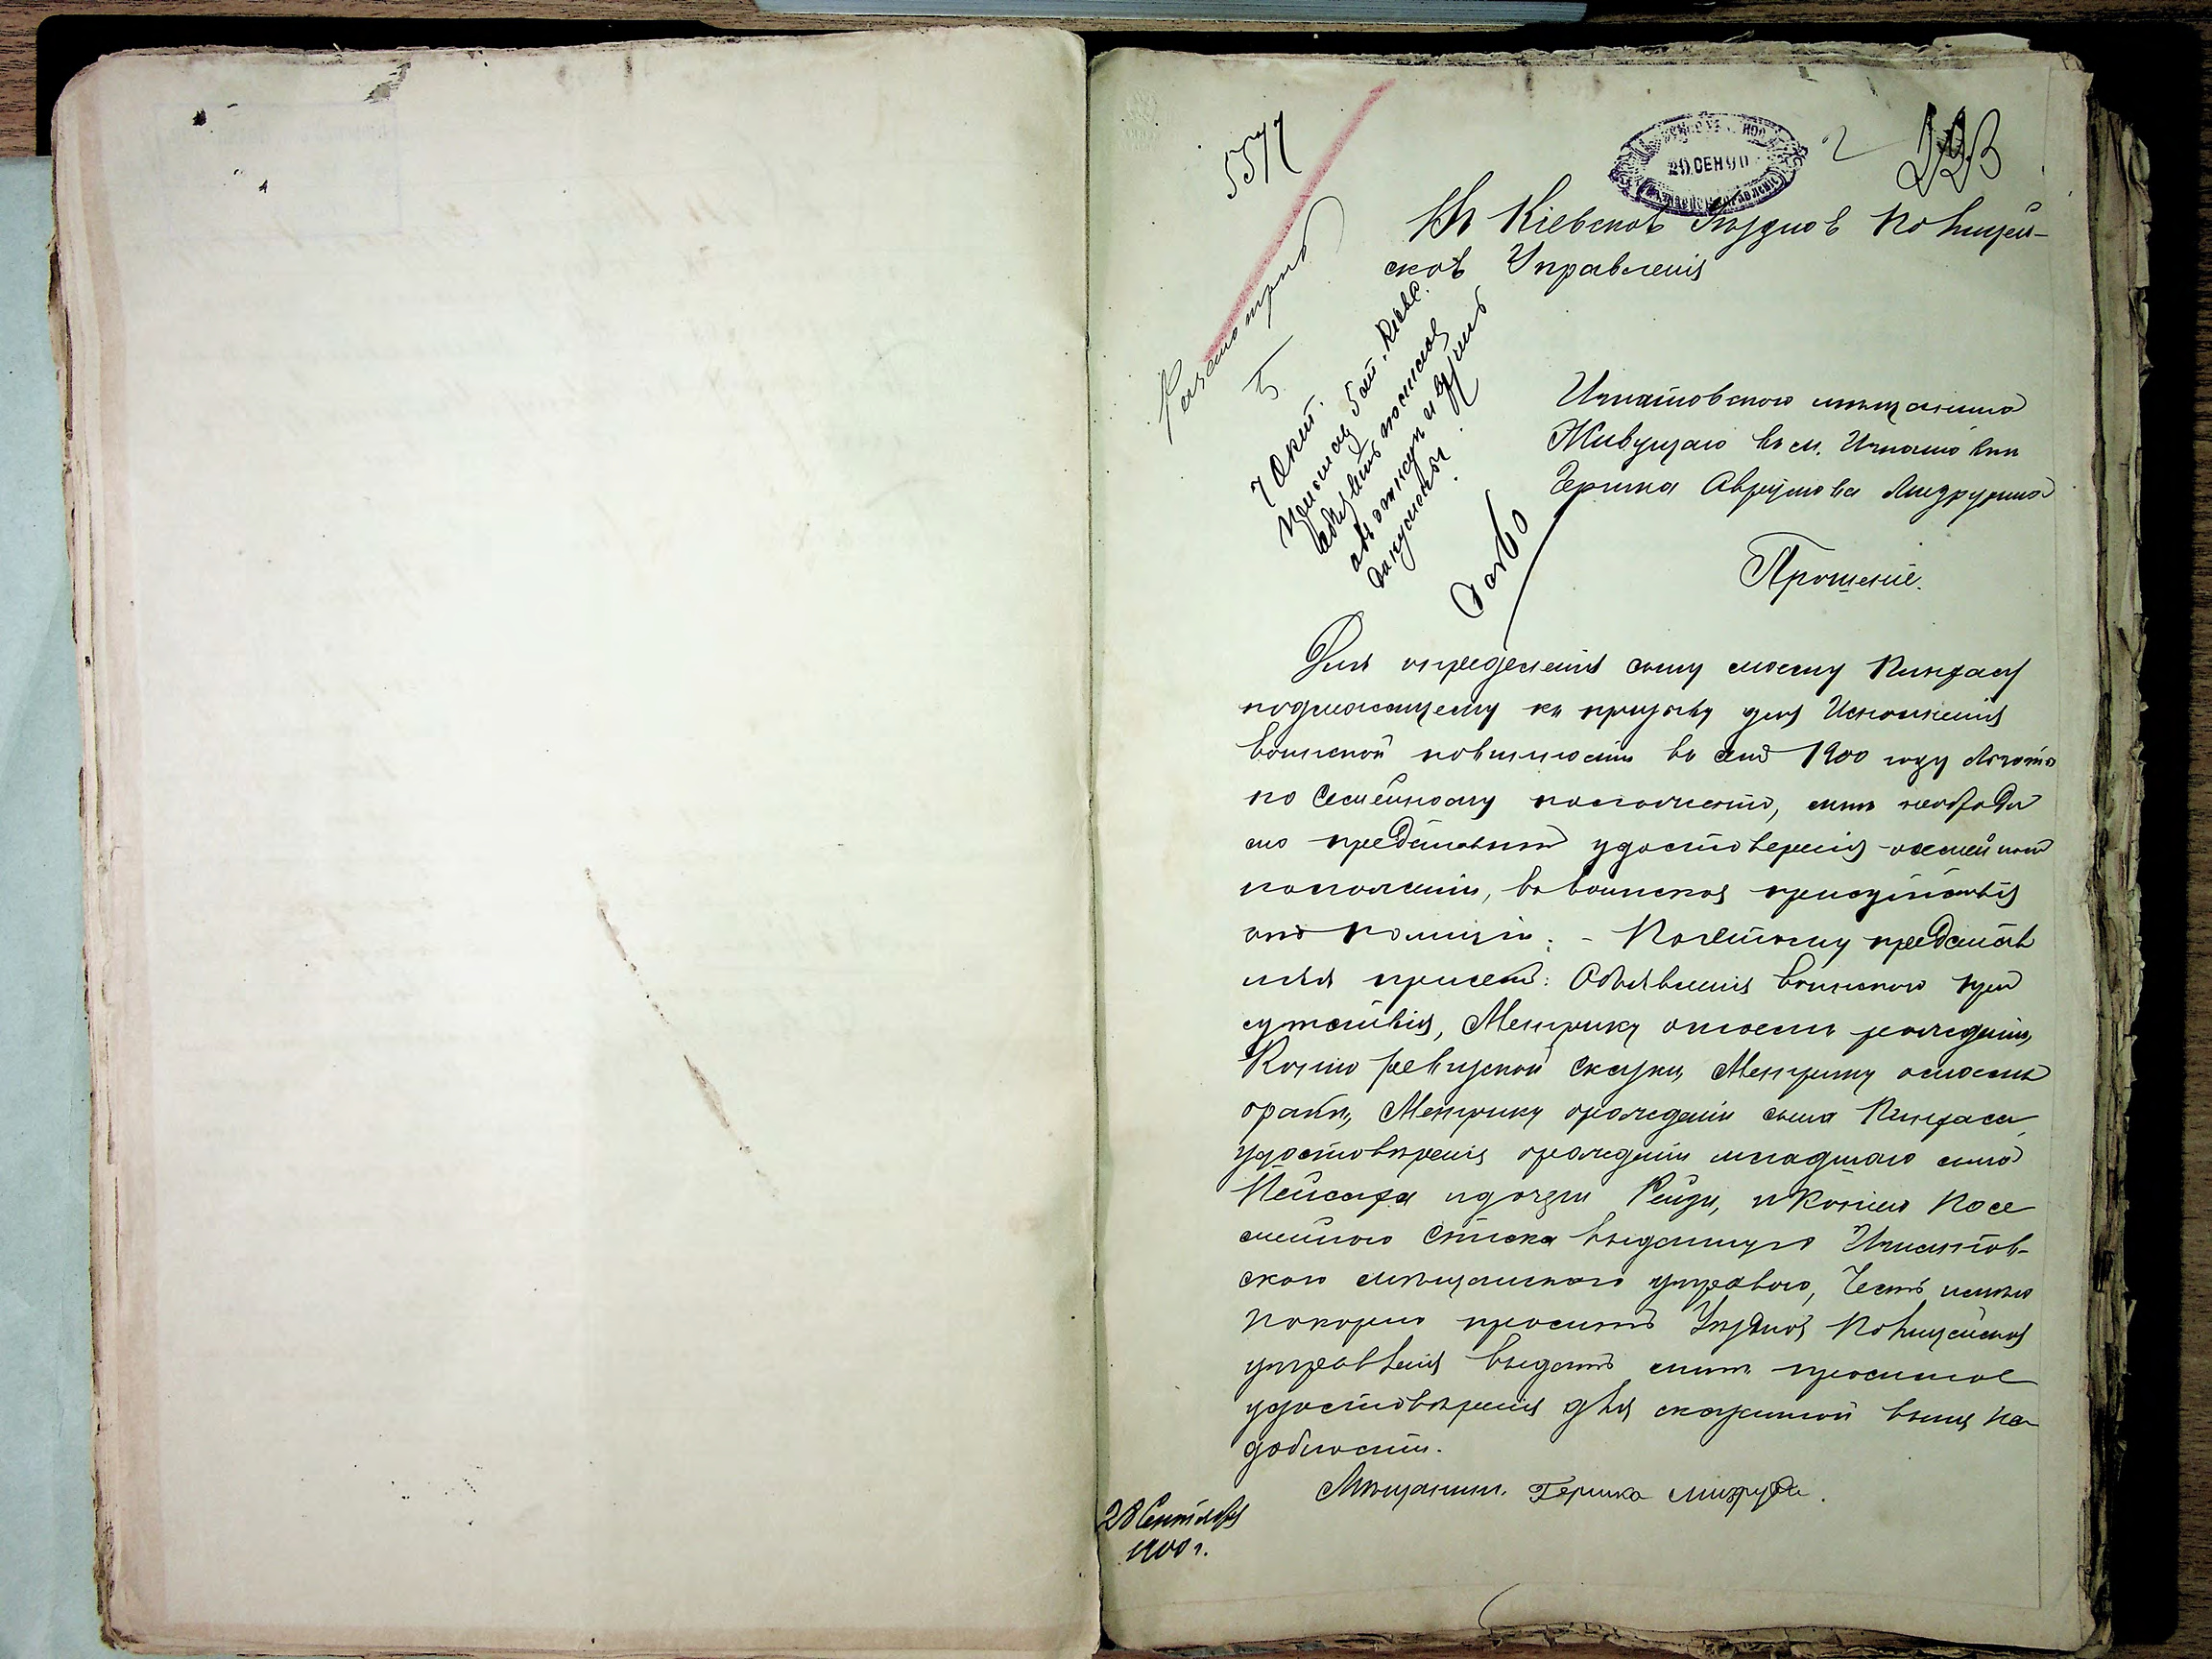 5571
20 СЕН 90
2
Въ Кіевское Уѣздное Полицей-
ское Управленія
Разсмотрѣно
7 Окт.
Игнатовского мѣщанина
Живущаго въ м. Игнатовки
Гершка Аврумова
Прошеніе.
Для определенія сыну моему Пинхасу
подлежащему къ призыву для Исполненія
воинской повинности въ семъ 1900 году льготы
по Семейному положенію, мнѣ необходи
мо представить удостоверенія о семейном
положеніи, въ воинское присутствія
отъ полиціи. - Поетому представ
ляя присемъ: Объявленія воинского при
сутствія, Метрику о моемъ рожденіи,
Копію ревизской сказки, Метрику о моемъ
браки, Метрику орожденіи сына Пинхаса,
удостовѣренія орожденіи младшаго сына
Пейсаха идочери Рейзи, и Копію Посе
мейного Списка выданную Игнатов-
ского мѣщанского управою, Честь имѣю
покорно просить Уѣздное Полицейское
управленія выдать мнѣ просимое
удостовѣренія для сказанной выше на
добности.
Мѣщанин. Гершко
28 Сентября
1900 г.